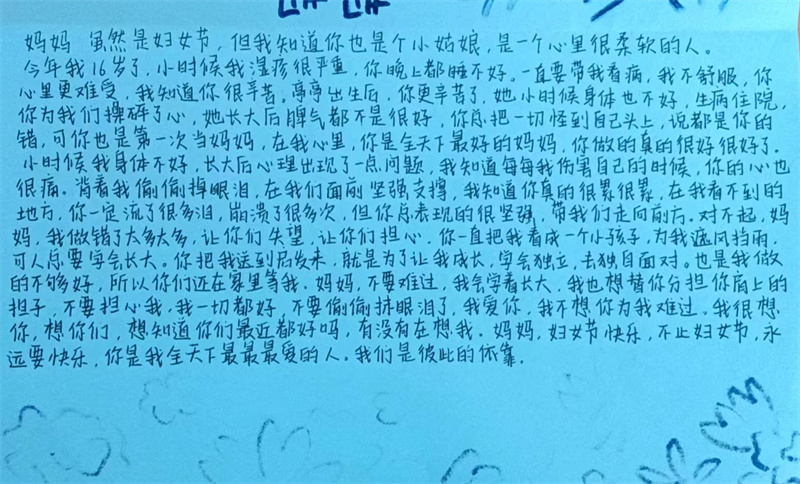 妈妈 虽然是妇女节，但我知道你也是个小姑娘，是一个心里很柔软的人。
今年我16岁了，小时候我湿疹很严重，你晚上都睡不好。一直要带我看病，我不舒服，你
心里更难受，我知道你很辛苦。亭亭出生后，你更辛苦了，她小时候身体也不好，生病住院，
你为我们操碎了心，她长大后脾气都不是很好，你总把一切怪到自己头上，说都是你的
错，可你也是第一次当妈妈，在我心里，你是全天下最好的妈妈，你做的真的很好很好了。
小时候我身体不好，长大后心理出现了一点问题，我知道每每我伤害自己的时候，你的心也
很痛。背着我偷偷掉眼泪，在我们面前坚强支撑，我知道你真的很累很累，在我看不到的
地方，你一定流了很多泪，崩溃了很多次，但你总表现的很坚强，带我们走向前方。对不起，妈
妈，我做错了太多太多，让你们失望，让你们担心，你一直把我看成一个小孩子，为我遮风挡雨，
可人总要学会长大。你把我送到启发来，就是为了让我成长，学会独立，去独自面对。也是我做
的不够好，所以你们还在家里等我。妈妈，不要难过，我会学着长大，我也想替你分担你肩上的
担子，不要担心我，我一切都好，不要偷偷抹眼泪了，我爱你，我不想你为我难过。我很想
你，想你们，想知道你们最近都好吗，有没有在想我。妈妈，妇女节快乐，不止妇女节，永
远要快乐，你是我全天下最最最爱的人。我们是彼此的依靠。